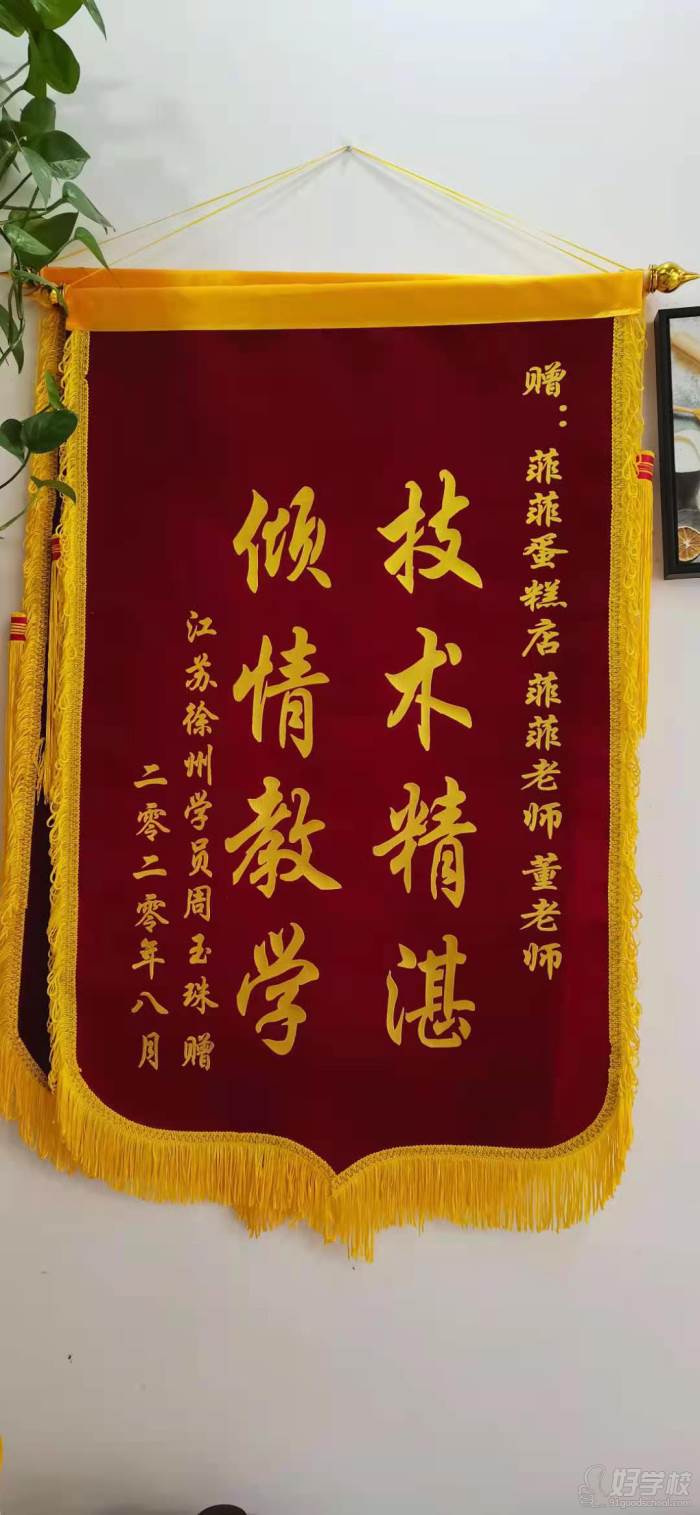 赠：菲菲蛋糕店 菲菲老师 董老师
技术精湛
倾情教学
江苏徐州学员周玉珠 赠
二零二零年八月
好学校
91goodschool.com